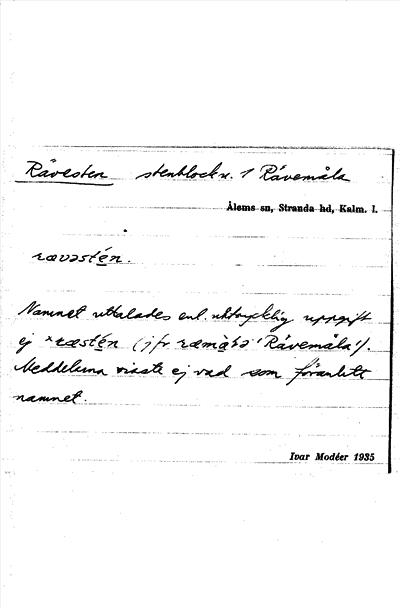 Rävesten stenblock n. 1 Rävemåla
Ålems sn, Stranda hd, Kalm. l.
rævəsté̱n.
Namnet uttalades enl. uttrycklig uppgift
ej *ræsté̱n (jfr ræmà̱ḷa 'Rävemåla').
Meddelarna visste ej vad som föranlett
namnet.
Ivar Modéer 1935